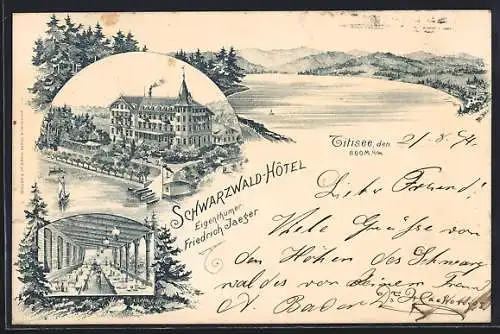 Titisee, den 21/8. 94.
860M.ü/M.
SCHWARZWALD-HÔTEL
Eigenthümer:
Friedrich Jaeger
Lieber Freund!
Viele Grüsse von
den Höhen des Schwarz
waldes von deinem Freund
A. Bader